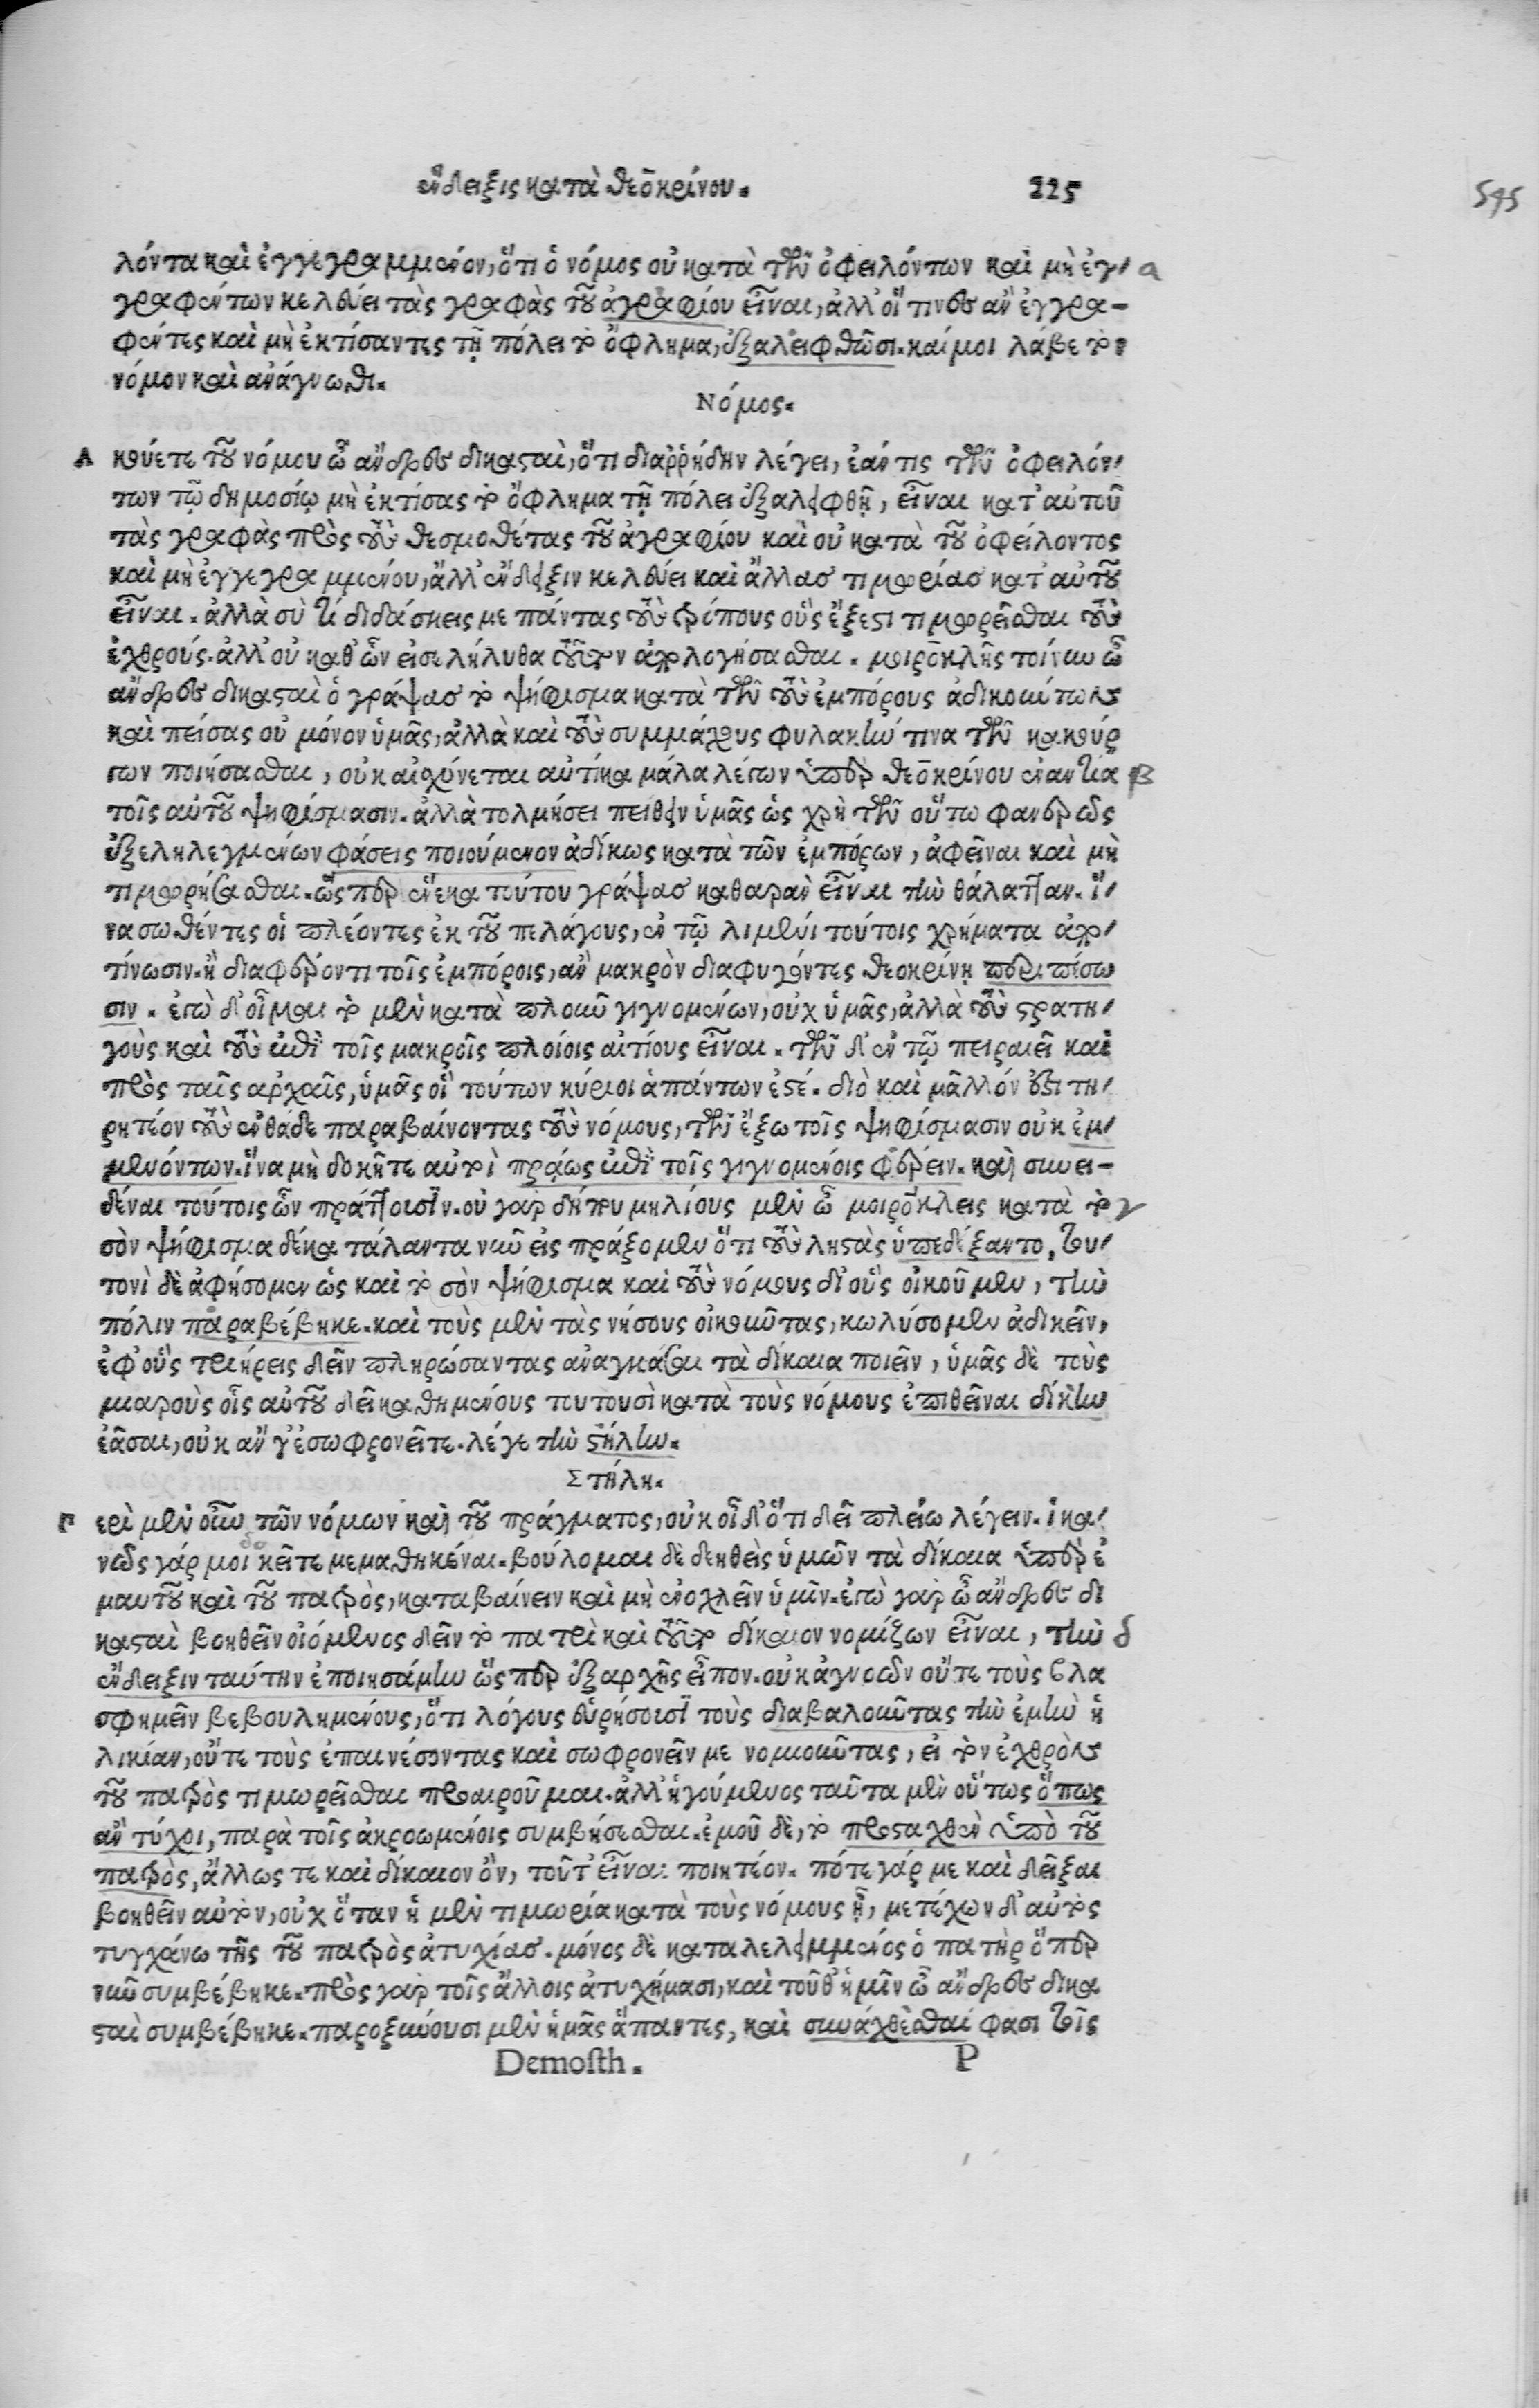 ἔνδειξις κατὰ θεοκρίνου. 225
595
λόντα καὶ ἐγγεγραμμένον, ὅτι ὁ νόμος οὐ κατὰ τῶν ὀφειλόντων καὶ μὴ ἐγ- a
γραφέντων κελεύει τὰς γραφὰς τοῦ ἀγραφίου εἶναι, ἀλλ' οἵ τινες ἂν ἐγγρα-
φέντες καὶ μὴ ἐκτίσαντες τῇ πόλει τὸ ὄφλημα, ἐξαλειφθῶσι. καί μοι λάβε τὸν
νόμον καὶ ἀνάγνωθι.
Νόμος.
Α κούετε τοῦ νόμου ὦ ἄνδρες δικασταὶ, ὅτι διαῤῥήδην λέγει, ἐάν τις τῶν ὀφειλόν-
των τῷ δημοσίῳ μὴ ἐκτίσας τὸ ὄφλημα τῇ πόλει ἐξαλειφθῇ, εἶναι κατ' αὐτοῦ
τὰς γραφὰς πρὸς τοὺς θεσμοθέτας τοῦ ἀγραφίου καὶ οὐ κατὰ τοῦ ὀφείλοντος
καὶ μὴ ἐγγεγραμμένου, ἀλλ' ἔνδειξιν κελεύει καὶ ἄλλας τιμωρίας κατ' αὐτοῦ
εἶναι. ἀλλὰ σὺ τί διδάσκεις με πάντας τοὺς τρόπους οὓς ἔξεστι τιμωρεῖσθαι τοὺς
ἐχθρούς. ἀλλ' οὐ καθ' ὧν εἰσελήλυθα τοῦτον ἀπολογήσασθαι. μοιροκλῆς τοίνυν ὦ
ἄνδρες δικασταὶ ὁ γράψας τὸ ψήφισμα κατὰ τῶν τοὺς ἐμπόρους ἀδικούντων
καὶ πείσας οὐ μόνον ὑμᾶς, ἀλλὰ καὶ τοὺς συμμάχους φυλακήν τινα τῶν κακούρ
γων ποιήσασθαι, οὐκ αἰσχύνεται αὐτίκα μάλα λέγων ὑπὲρ θεοκρίνου ἐναντία β
τοῖς αὑτοῦ ψηφίσμασιν. ἀλλὰ τολμήσει πείθειν ὑμᾶς ὡς χρὴ τὸν οὕτω φανερῶς
ἐξεληλεγμένων φάσεις ποιούμενον ἀδίκως κατὰ τῶν ἐμπόρων, ἀφεῖναι καὶ μὴ
τιμωρήσασθαι. ὥσπερ ἕνεκα τούτου γράψας καθαρὰν εἶναι τὴν θάλατταν. ἵ-
να σωθέντες οἱ πλέοντες ἐκ τοῦ πελάγους, ἐν τῷ λιμένι τούτοις χρήματα ἀπο-
τίνωσιν. ἢ διαφέρον τι τοῖς ἐμπόροις, ἂν μακρὸν διαφυγόντες θεοκρίνῃ περιπέσω
σιν. ἐγὼ δ' οἶμαι τὸ μὲν κατὰ πλοῦν γιγνομένων, οὐχ ὑμᾶς, ἀλλὰ τοὺς στρατη-
γοὺς καὶ τοὺς ἐπὶ τοῖς μακροῖς πλοίοις αἰτίους εἶναι. τῶν δ' ἐν τῷ πειραιεῖ καὶ
πρὸς ταῖς ἀρχαῖς, ὑμᾶς οἳ τούτων κύριοι ἁπάντων ἐστέ. διὸ καὶ μᾶλλόν ἐστι τη-
ρητέον τοὺς ἐνθάδε παραβαίνοντας τοὺς νόμους, τῶν ἔξω τοῖς ψηφίσμασιν οὐκ ἐμ-
μενόντων. ἵνα μὴ δοκῆτε αὐτοὶ πράως ἐπὶ τοῖς γιγνομένοις φέρειν. καὶ συνει-
δέναι τούτοις ὧν πράττουσιν. οὐ γὰρ δήπου μηλίους μὲν ὦ μοιρόκλεις κατὰ τὸ γ
σὸν ψήφισμα δέκα τάλαντα νῦν εἰς πράξομεν ὅτι τοὺς λῃστὰς ὑπεδέξαντο, του-
τονὶ δὲ ἀφήσομεν ὡς καὶ τὸ σὸν ψήφισμα καὶ τοὺς νόμους δι' οὓς οἰκοῦμεν, τὴν
πόλιν παραβέβηκε. καὶ τοὺς μὲν τὰς νήσους οἰκοῦντας, κωλύσομεν ἀδικεῖν,
ἐφ' οὓς τριήρεις δεῖν πληρώσαντας ἀναγκάσαι τὰ δίκαια ποιεῖν, ὑμᾶς δὲ τοὺς
μιαροὺς οἷς αὐτοῦ δεῖ καθημένους τουτουσὶ κατὰ τοὺς νόμους ἐπιθεῖναι δίκην
ἐᾶσαι, οὐκ ἂν γ' ἐσωφρονεῖτε. λέγε τὴν στήλην.
Στήλη.
Π ερὶ μὲν οὖν τῶν νόμων καὶ τοῦ πράγματος, οὐκ οἶδ' ὅτι δεῖ πλείω λέγειν. ἱκα-
νῶς γάρ μοι δοκεῖτε μεμαθηκέναι. βούλομαι δὲ δεηθεὶς ὑμῶν τὰ δίκαια ὑπὲρ ἐ
μαυτοῦ καὶ τοῦ πατρὸς, καταβαίνειν καὶ μὴ ἐνοχλεῖν ὑμῖν. ἐγὼ γὰρ ὦ ἄνδρες δι
κασταὶ βοηθεῖν οἰόμενος δεῖν τῷ πατρὶ καὶ τοῦτο δίκαιον νομίζων εἶναι, τὴν δ
ἔνδειξιν ταύτην ἐποιησάμην ὥσπερ ἐξ ἀρχῆς εἶπον. οὐκ ἀγνοῶν οὔτε τοὺς βλα
σφημεῖν βεβουλημένους, ὅτι λόγους εὑρήσουσι τοὺς διαβαλοῦντας τὴν ἐμὴν ἡ
λικίαν, οὔτε τοὺς ἐπαινέσοντας καὶ σωφρονεῖν με νομιοῦντας, εἰ τὸν ἐχθρὸν
τοῦ πατρὸς τιμωρεῖσθαι προαιροῦμαι. ἀλλ' ἡγούμενος ταῦτα μὲν οὕτως ὅπως
ἂν τύχοι, παρὰ τοῖς ἀκροωμένοις συμβήσεσθαι. ἐμοῦ δὲ, τὸ προσταχθὲν ὑπὸ τοῦ
πατρὸς, ἄλλως τε καὶ δίκαιον ὂν, τοῦτ' εἶναι ποιητέον. πότε γάρ με καὶ δεῖξαι
βοηθεῖν αὐτὸν, οὐχ ὅταν ἡ μὲν τιμωρία κατὰ τοὺς νόμους ᾖ, μετέχων δ' αὐτὸς
τυγχάνω τῆς τοῦ πατρὸς ἀτυχίας. μόνος δὲ καταλελειμμένος ὁ πατὴρ ὅπερ
νῦν συμβέβηκε. πρὸς γὰρ τοῖς ἄλλοις ἀτυχήμασι, καὶ τοῦθ' ἡμῖν ὦ ἄνδρες δικα
σταὶ συμβέβηκε. παροξύνουσι μὲν ἡμᾶς ἅπαντες, καὶ συνάχθεσθαί φασι τοῖς
Demosth. P